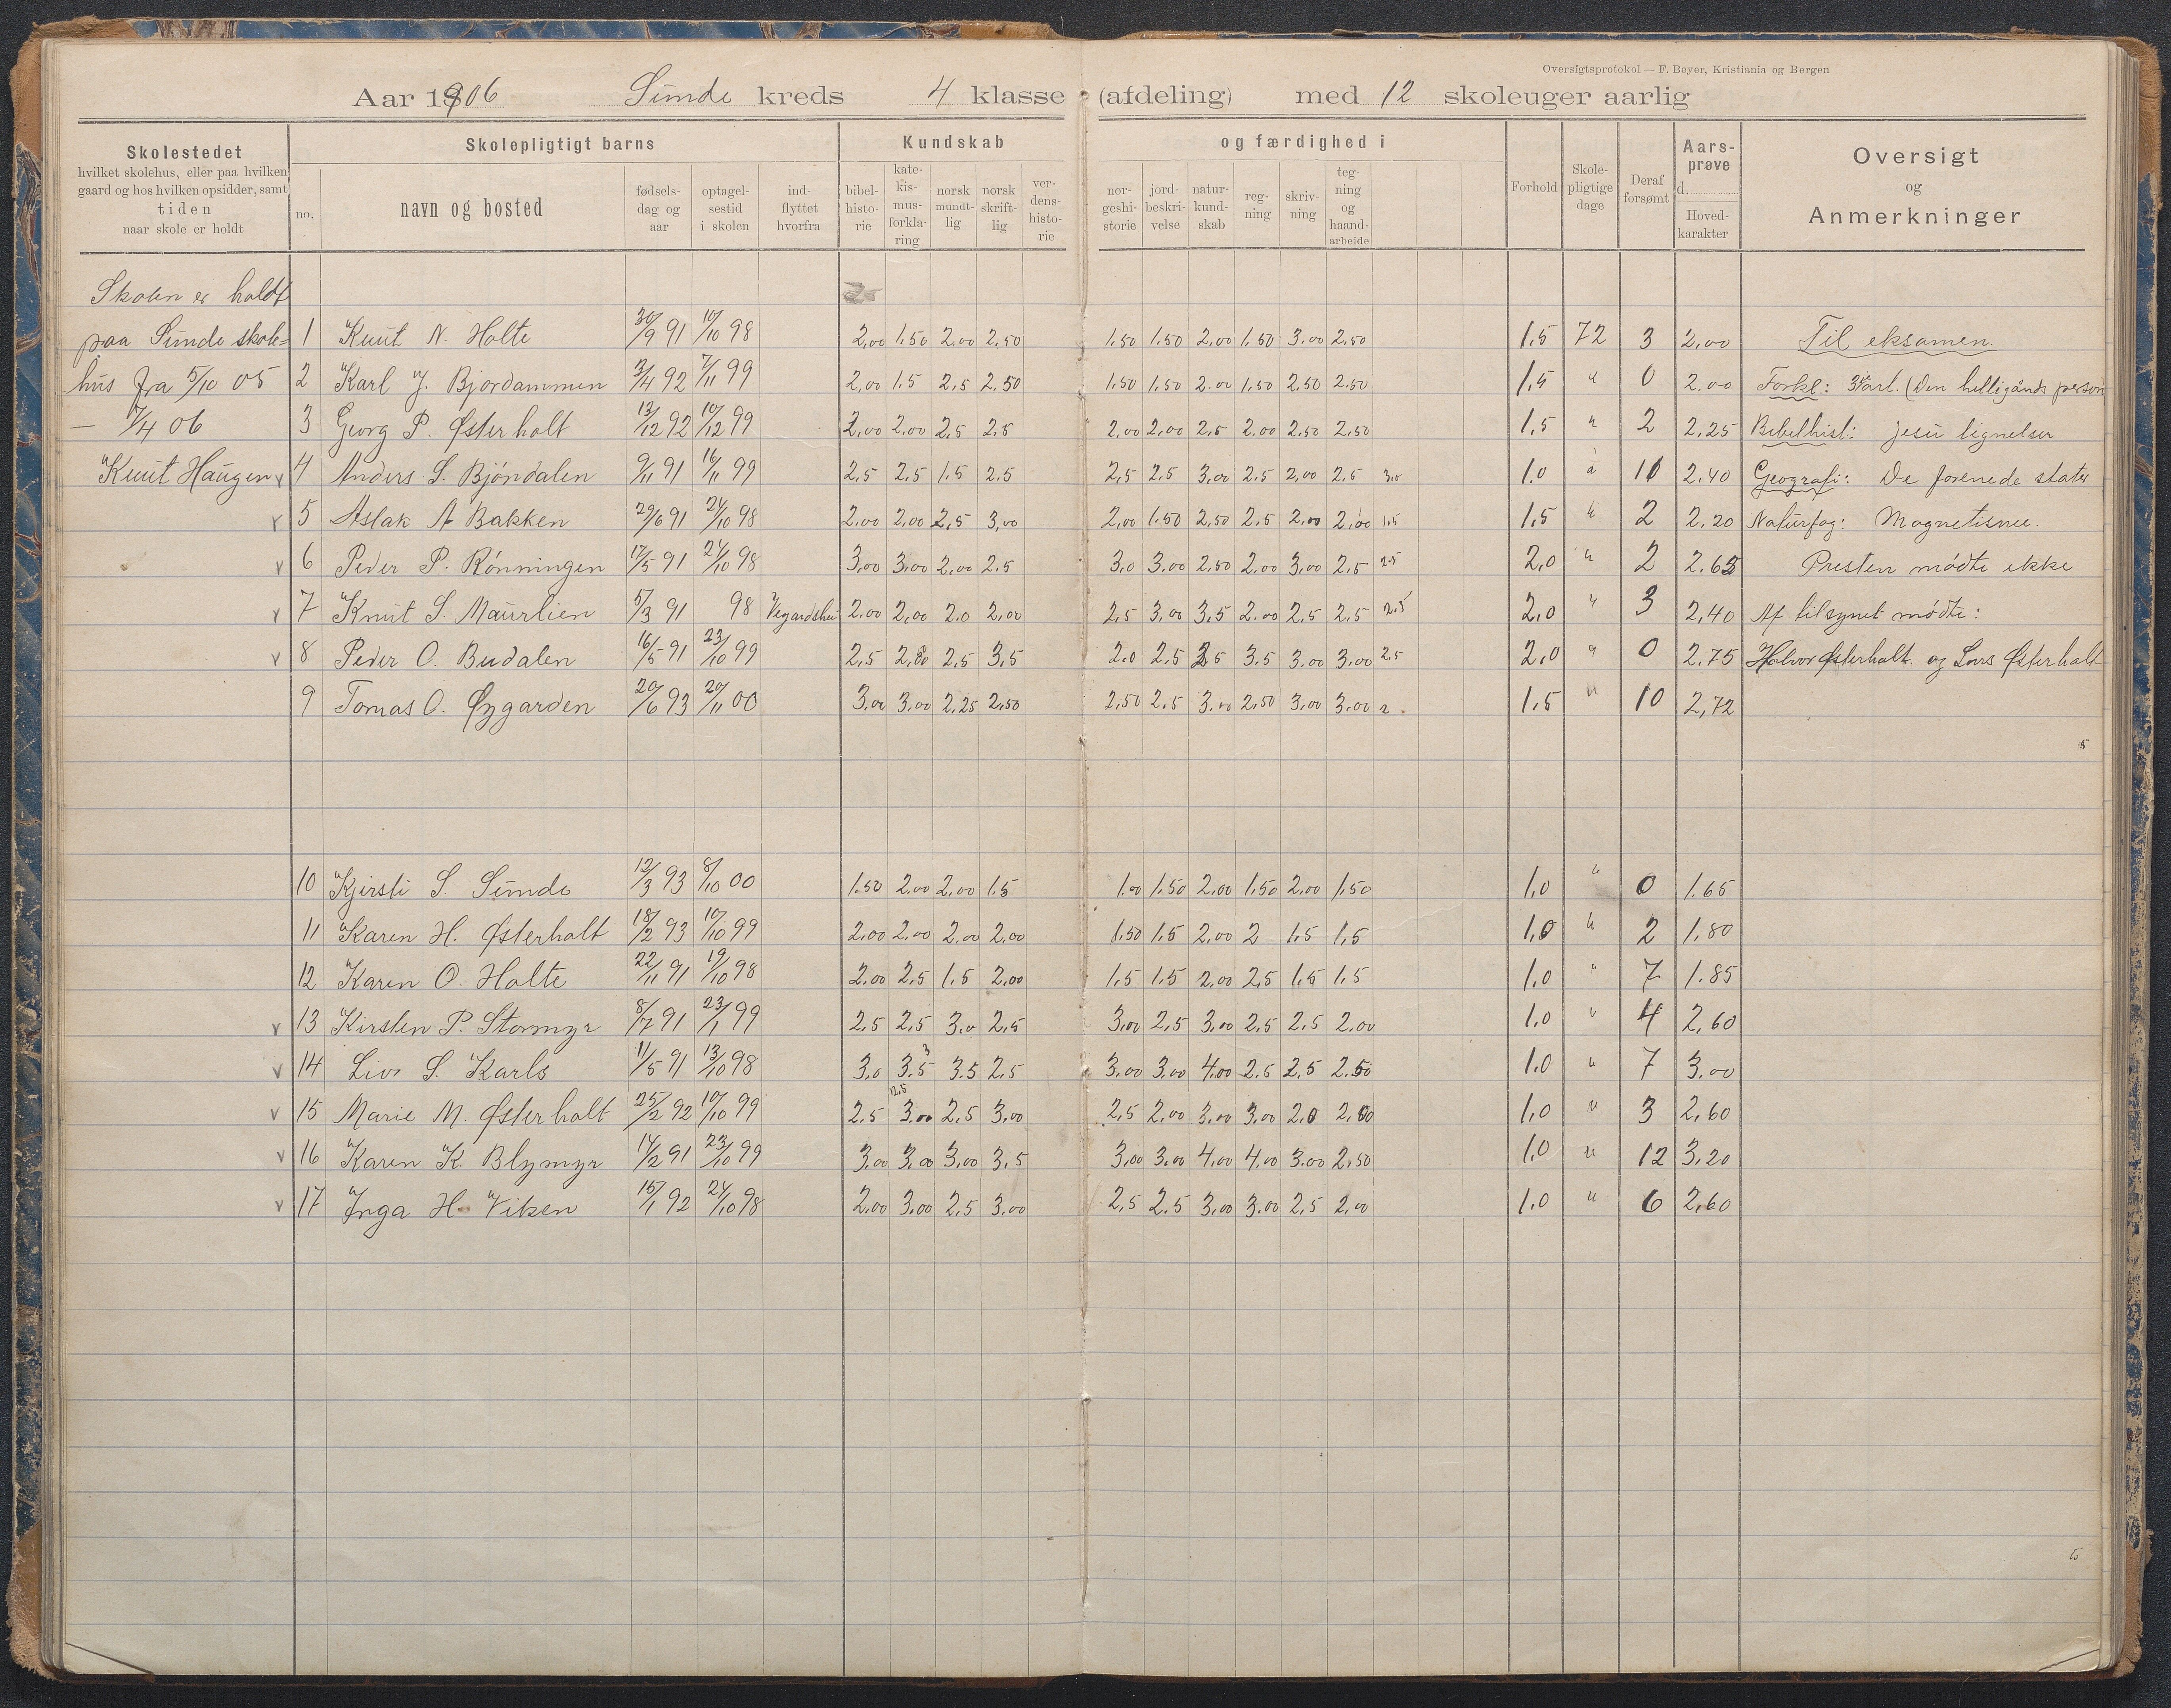 Oversigtsprotokol — F. Beyer, Kristiania og Bergen
Aar 1906 Sunde kreds 4 klasse (afdeling) med 12 skoleuger aarlig
Skolestedet
hvilket skolehus, eller paa hvilken
gaard og hos hvilken opsidder, samt
tiden
naar skole er holdt
Skolepligtigt barns
no. navn og bosted fødsels-dag og aar optagel-sestid i skolen ind-flyttet hvorfra
Kundskab og færdighed i
bibel-histo-rie kate-kis-mus-forkla-ring norsk mundt-lig norsk skrift-lig ver-dens-histo-rie nor-geshi-storie jord-beskri-velse natur-kund-skab reg-ning skriv-ning teg-ning og haand-arbeide
Forhold Skole-pligtige dage Deraf forsømt Aars-prøve d. Hoved-karakter
Oversigt og Anmerkninger
Skolen er holdt
paa Sunde skole- 1 Knut N. Holte 30/9 91 10/10 98 2,00 1.50 2.00 2,50 1.50 1.50 2,00 1,50 3.00 2,50 1.5 72 3 2,00 Til eksamen.
hus fra 5/10 05 2 Karl J. Bjordammen 3/4 92 7/11 99 2,00 1.5 2,5 2,50 1,50 1,50 2.00 1,50 2,50 2.50 1.5 " 0 2.00 Forkl: 3 art. (Den helligånds person
— 7/4 06 3 Georg P. Østerholt 13/12 92 10/12 99 2,00 2,00 2,5 2,5 2,00 2,00 2,5 2.00 2.50 2,50 1,5 " 2 2,25 Bibelhist: Jesu lignelser
Knut Haugen v 4 Anders S. Bjöndalen 9/11 91 16/11 99 2,5 2,5 1.5 2.5 2,5 2.5 3,00 2.5 2,00 2,5 3,0 1.0 " 11 2,40 Geografi: De forenede stater
v 5 Aslak A Bakken 29/6 91 24/10 98 2,00 2,00 2,5 3,00 2,00 1.50 2,50 2,5 2,00 2,00 1,5 1,5 " 2 2,20 Naturfag: Magnetisme.
v 6 Peder P. Rönningen 17/5 91 24/10 98 3,00 3,00 2,00 2.5 3,0 3,00 2,50 2,00 3,00 2,5 2.5 2,0 " 2 2.63 Presten mødte ikke
v 7 Knut S. Maurlien 5/3 91 98 Vegardshei 2.00 2,00 2.0 2,00 2,5 3,00 3,5 2.00 2,5 2,5 2.5 2,0 " 3 2,40 Af tilsynet mødte:
v 8 Peder O. Budalen 16/5 91 23/10 99 2,5 2,00 2,5 3,5 2.0 2,5 3,5 3.5 3,00 3,00 2.5 2,0 " 0 2,75 Halvor Østerholt. og Lars Østerholt
9 Tomas O. Øygarden 20/6 93 20/11 00 3,00 3,00 2,25 2,50 2,50 2.5 3.00 2,50 3,00 3,00 2. 1,5 " 10 2,72
5
10 Kjersti S. Sunde 12/3 93 8/10 00 1.50 2,00 2,00 1.5 1.00 1.50 2,00 1,50 2,00 1,50 1,0 " 0 1.65
11 Karen H. Østerholt 18/2 93 10/10 99 2,00 2,00 2,00 2,00 1,50 1.5 2,00 2 1,5 1,5 1,0 " 2 1,80
12 Karen O. Holte 22/11 91 19/10 98 2.00 2,5 1,5 2,00 1,5 1,5 2,00 2,5 1,5 1,5 1,0 " 7 1.85
v 13 Kirsten P. Stormyr 8/7 91 23/1 99 2,5 2,5 3,0 2,5 3,00 2,5 3,00 2.5 2.5 2,00 1.0 " 4 2,60
v 14 Liv S. Karls 11/5 91 13/10 98 3,0 3.5 3 3.5 2,5 3,00 3,00 4,00 2.5 2,5 2.50 1.0 " 7 3,00
v 15 Marie M. Østerholt 25/2 92 10/10 99 2.5 2,5 3,00 2,5 3,00 2,5 2,00 3,00 3,00 2,0 2,00 1,0 " 3 2,60
v 16 Karen K. Blymyr 14/2 91 23/10 99 3,00 3,00 3,00 3,5 3,00 3,00 4,00 4,00 3,00 2,50 1,0 " 12 3,20
v 17 Inga H. Viken 15/1 92 24/10 98 2,00 3,00 2,5 3,00 2,5 2.5 3,00 3.00 2,5 2,00 1.0 " 6 2,60